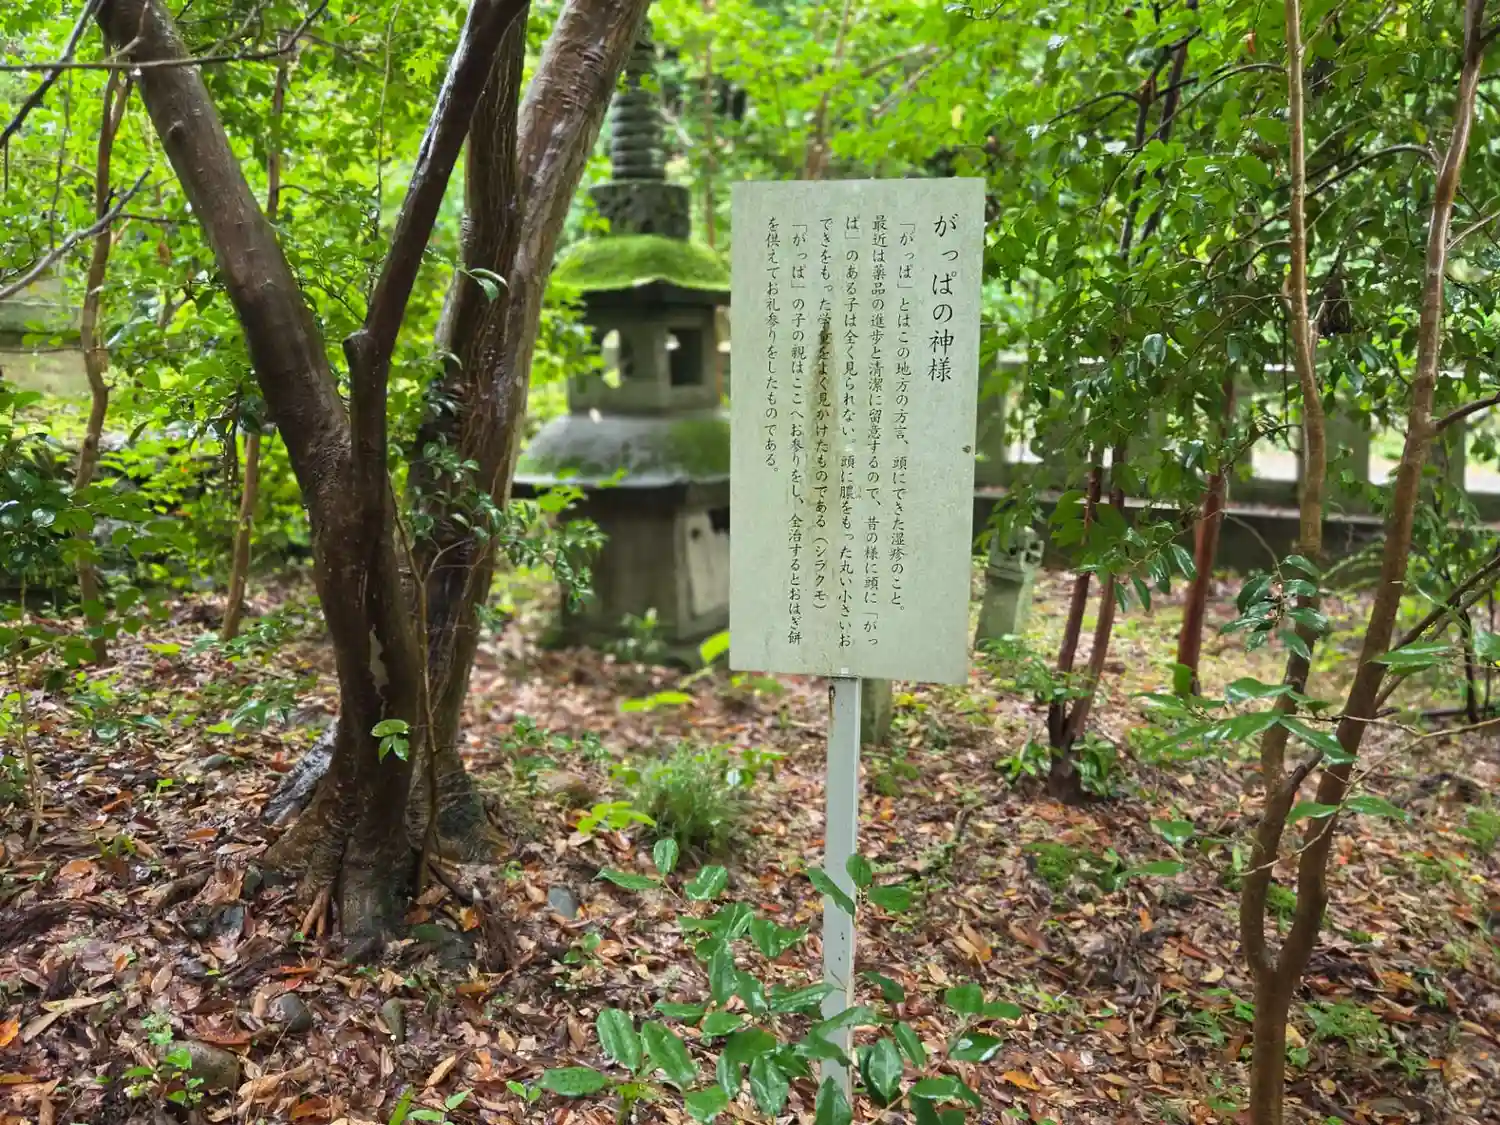 がっぱの神様
「がっぱ」とはこの地方の方言、頭にできた湿疹のこと。
最近は薬品の進歩と清潔に留意するので、昔の様に頭に「がっ
ぱ」のある子は全く見られない。頭に膿をもった丸い小さいお
できをもった学童をよく見かけたものである(シラクモ)
「がっぱ」の子の親はここへお参りをし、全治するとおはぎ餅
を供えてお礼参りをしたものである。